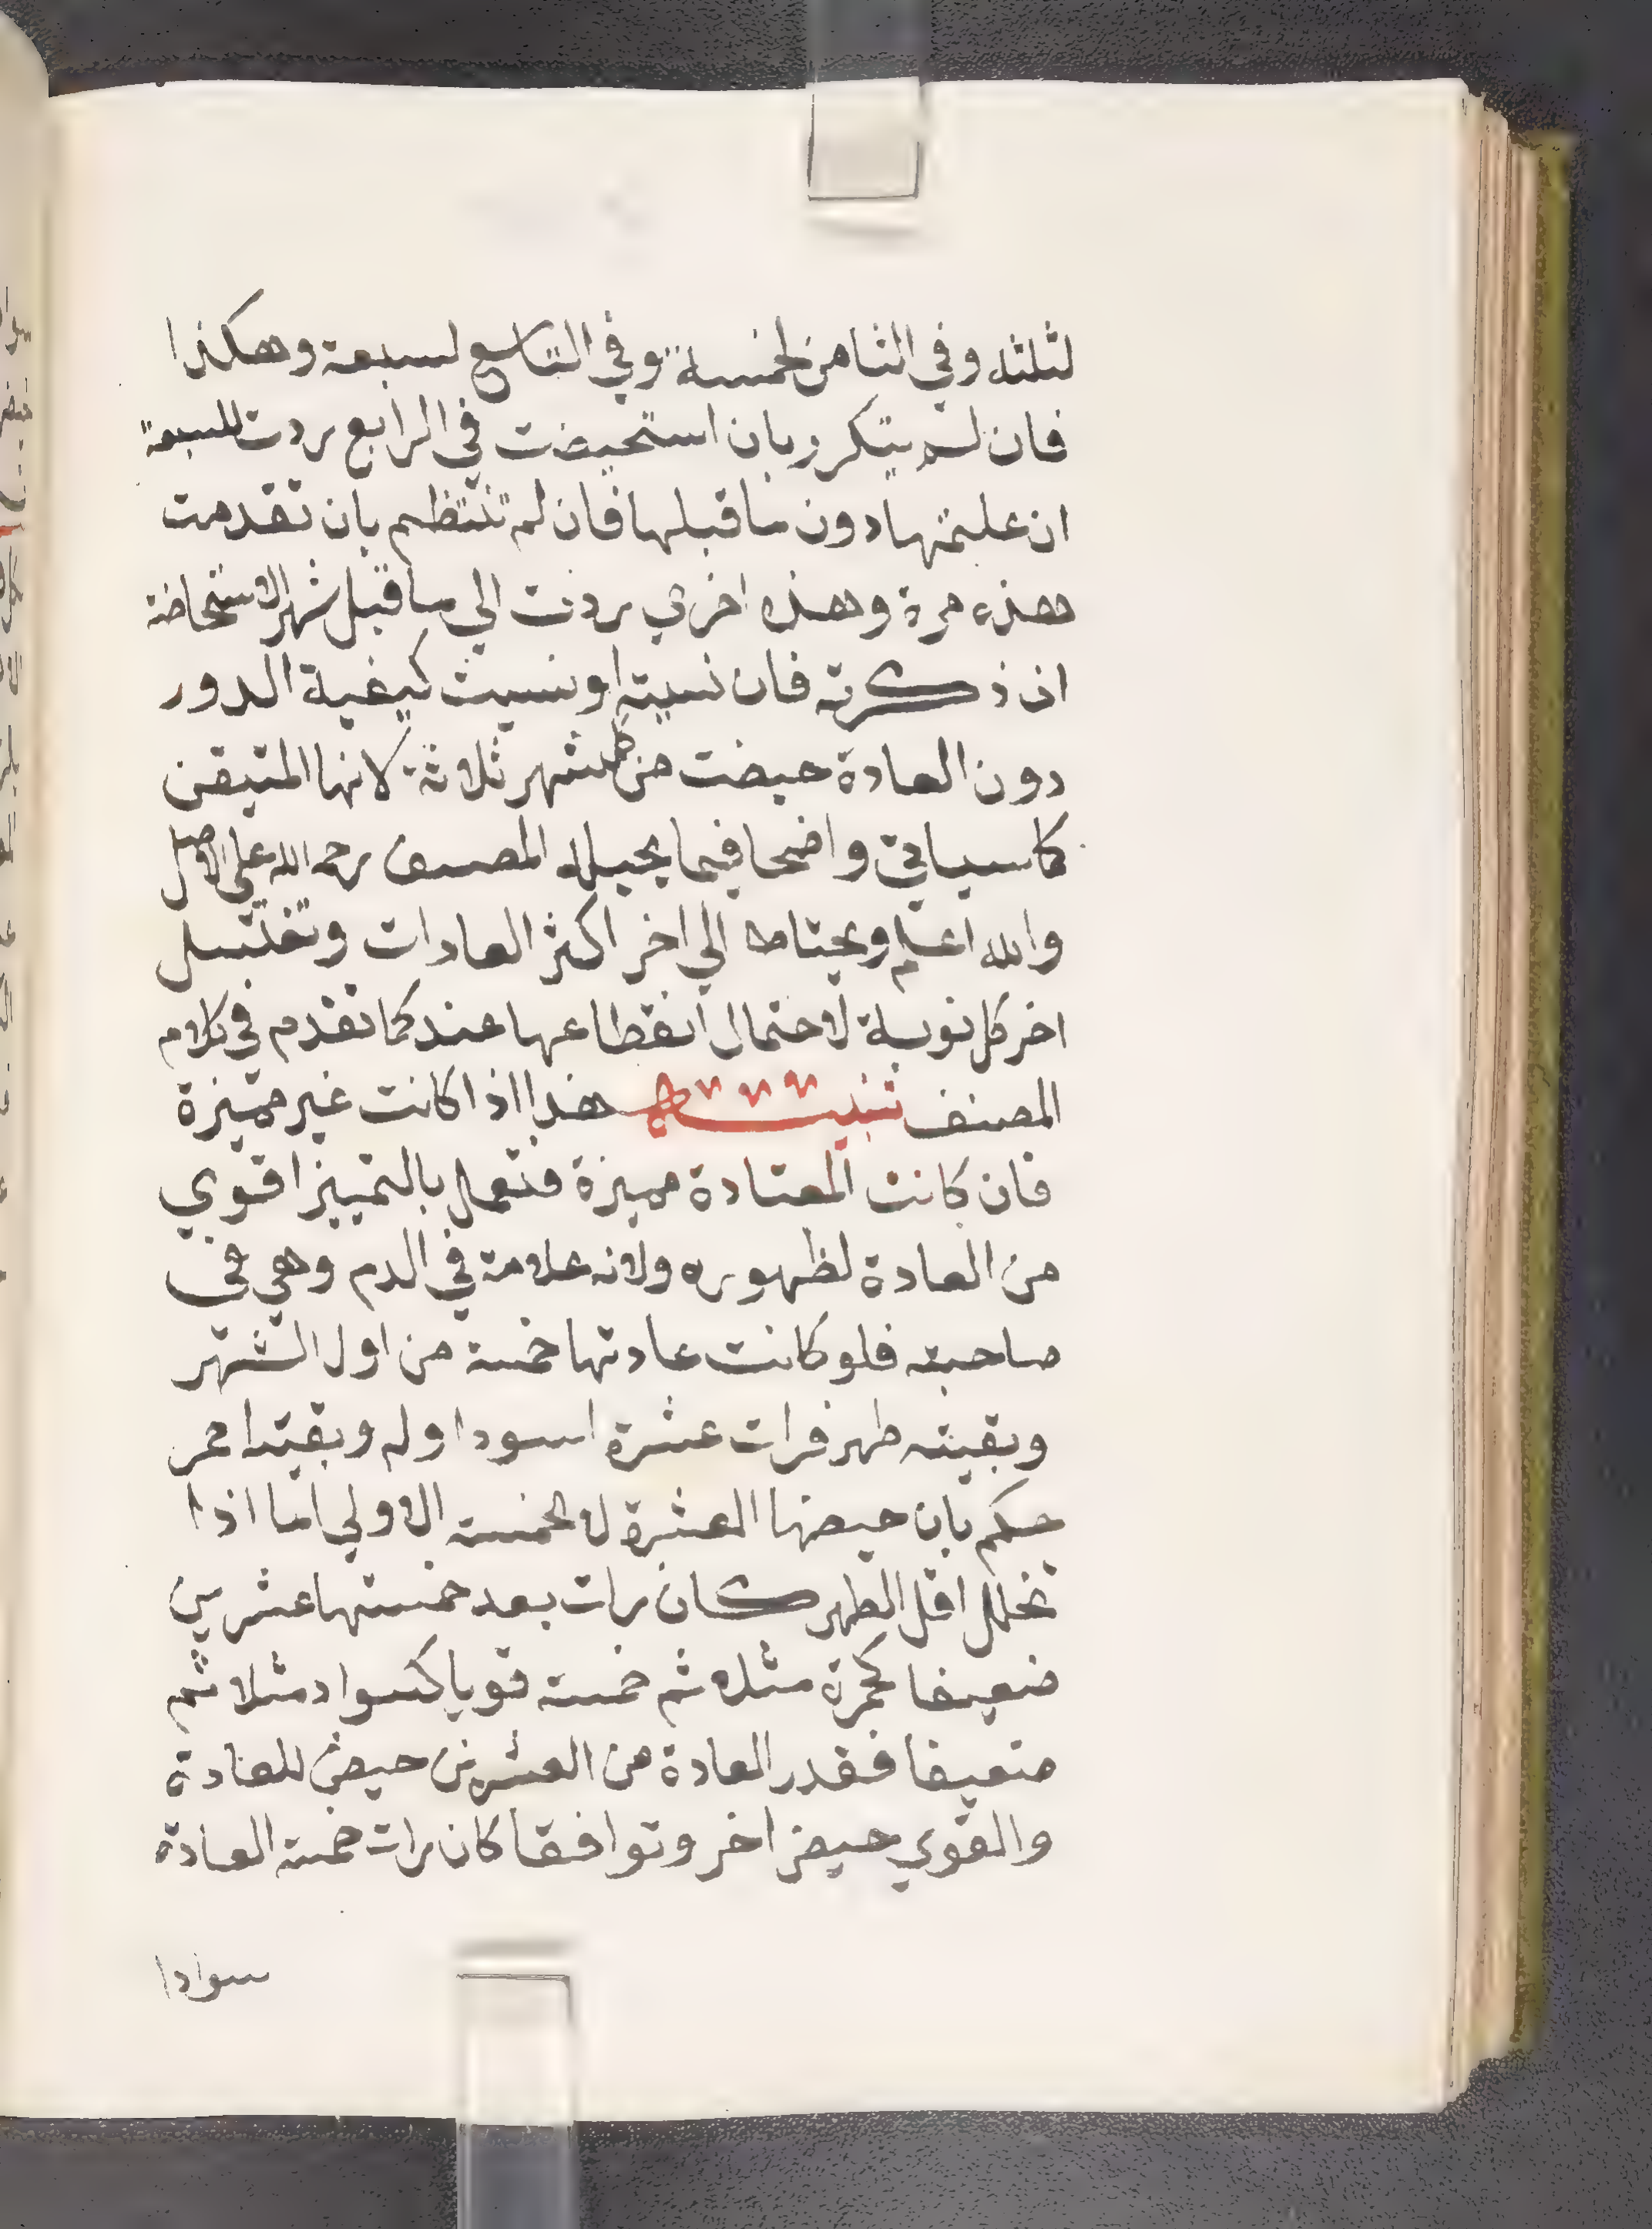 لثلثه وفي الثامن لخمسة وفي التاسع لسبعة وهكذا
فان لم يتكرر بان استحيضت في الرابع ردت للسبعة
ان علمتها دون ما قبلها فان لم تنتظم بان تقدمت
هذه مرة وهذه اخري ردت الي ما قبل شهر الاستحاضة
ان ذكرته فان نسيته او نسيت كيفية الدور
دون العادة حيضت من كل شهر ثلاثة لانها المتيقن
كما سياتي واضحا فيما يحيله المصنف رحمه الله علي الاصل
والله اعلم ويحتاط الي اخر اكثر العادات وتغتسل
اخر كل نوبة لاحتمال انقطاعها عند كما تقدم في كلام
المصنف تنبيه هذا اذا كانت غير مميزة
فان كانت المعتادة مميزة فتعمل بالتمييز اقوي
من العادة لظهوره ولانه علامة في الدم وهي في
صاحبته فلو كانت عادتها خمسة من اول الشهر
وبقيته طهر فرات عشرة اسود اوله وبقيته احمر
حكم بان حيضها العشرة لا الخمسة الاولي اما اذا
تخلل اقل الطهر كان رات بعد خمستها عشرين
ضعيفا كحمرة مثلا ثم خمسة قويا كسواد مثلا ثم
ضعيفا فقدر العادة من العشرين حيض للعادة
والقوي حيض اخر وتوافقا كان رات خمسة العادة
سوادا